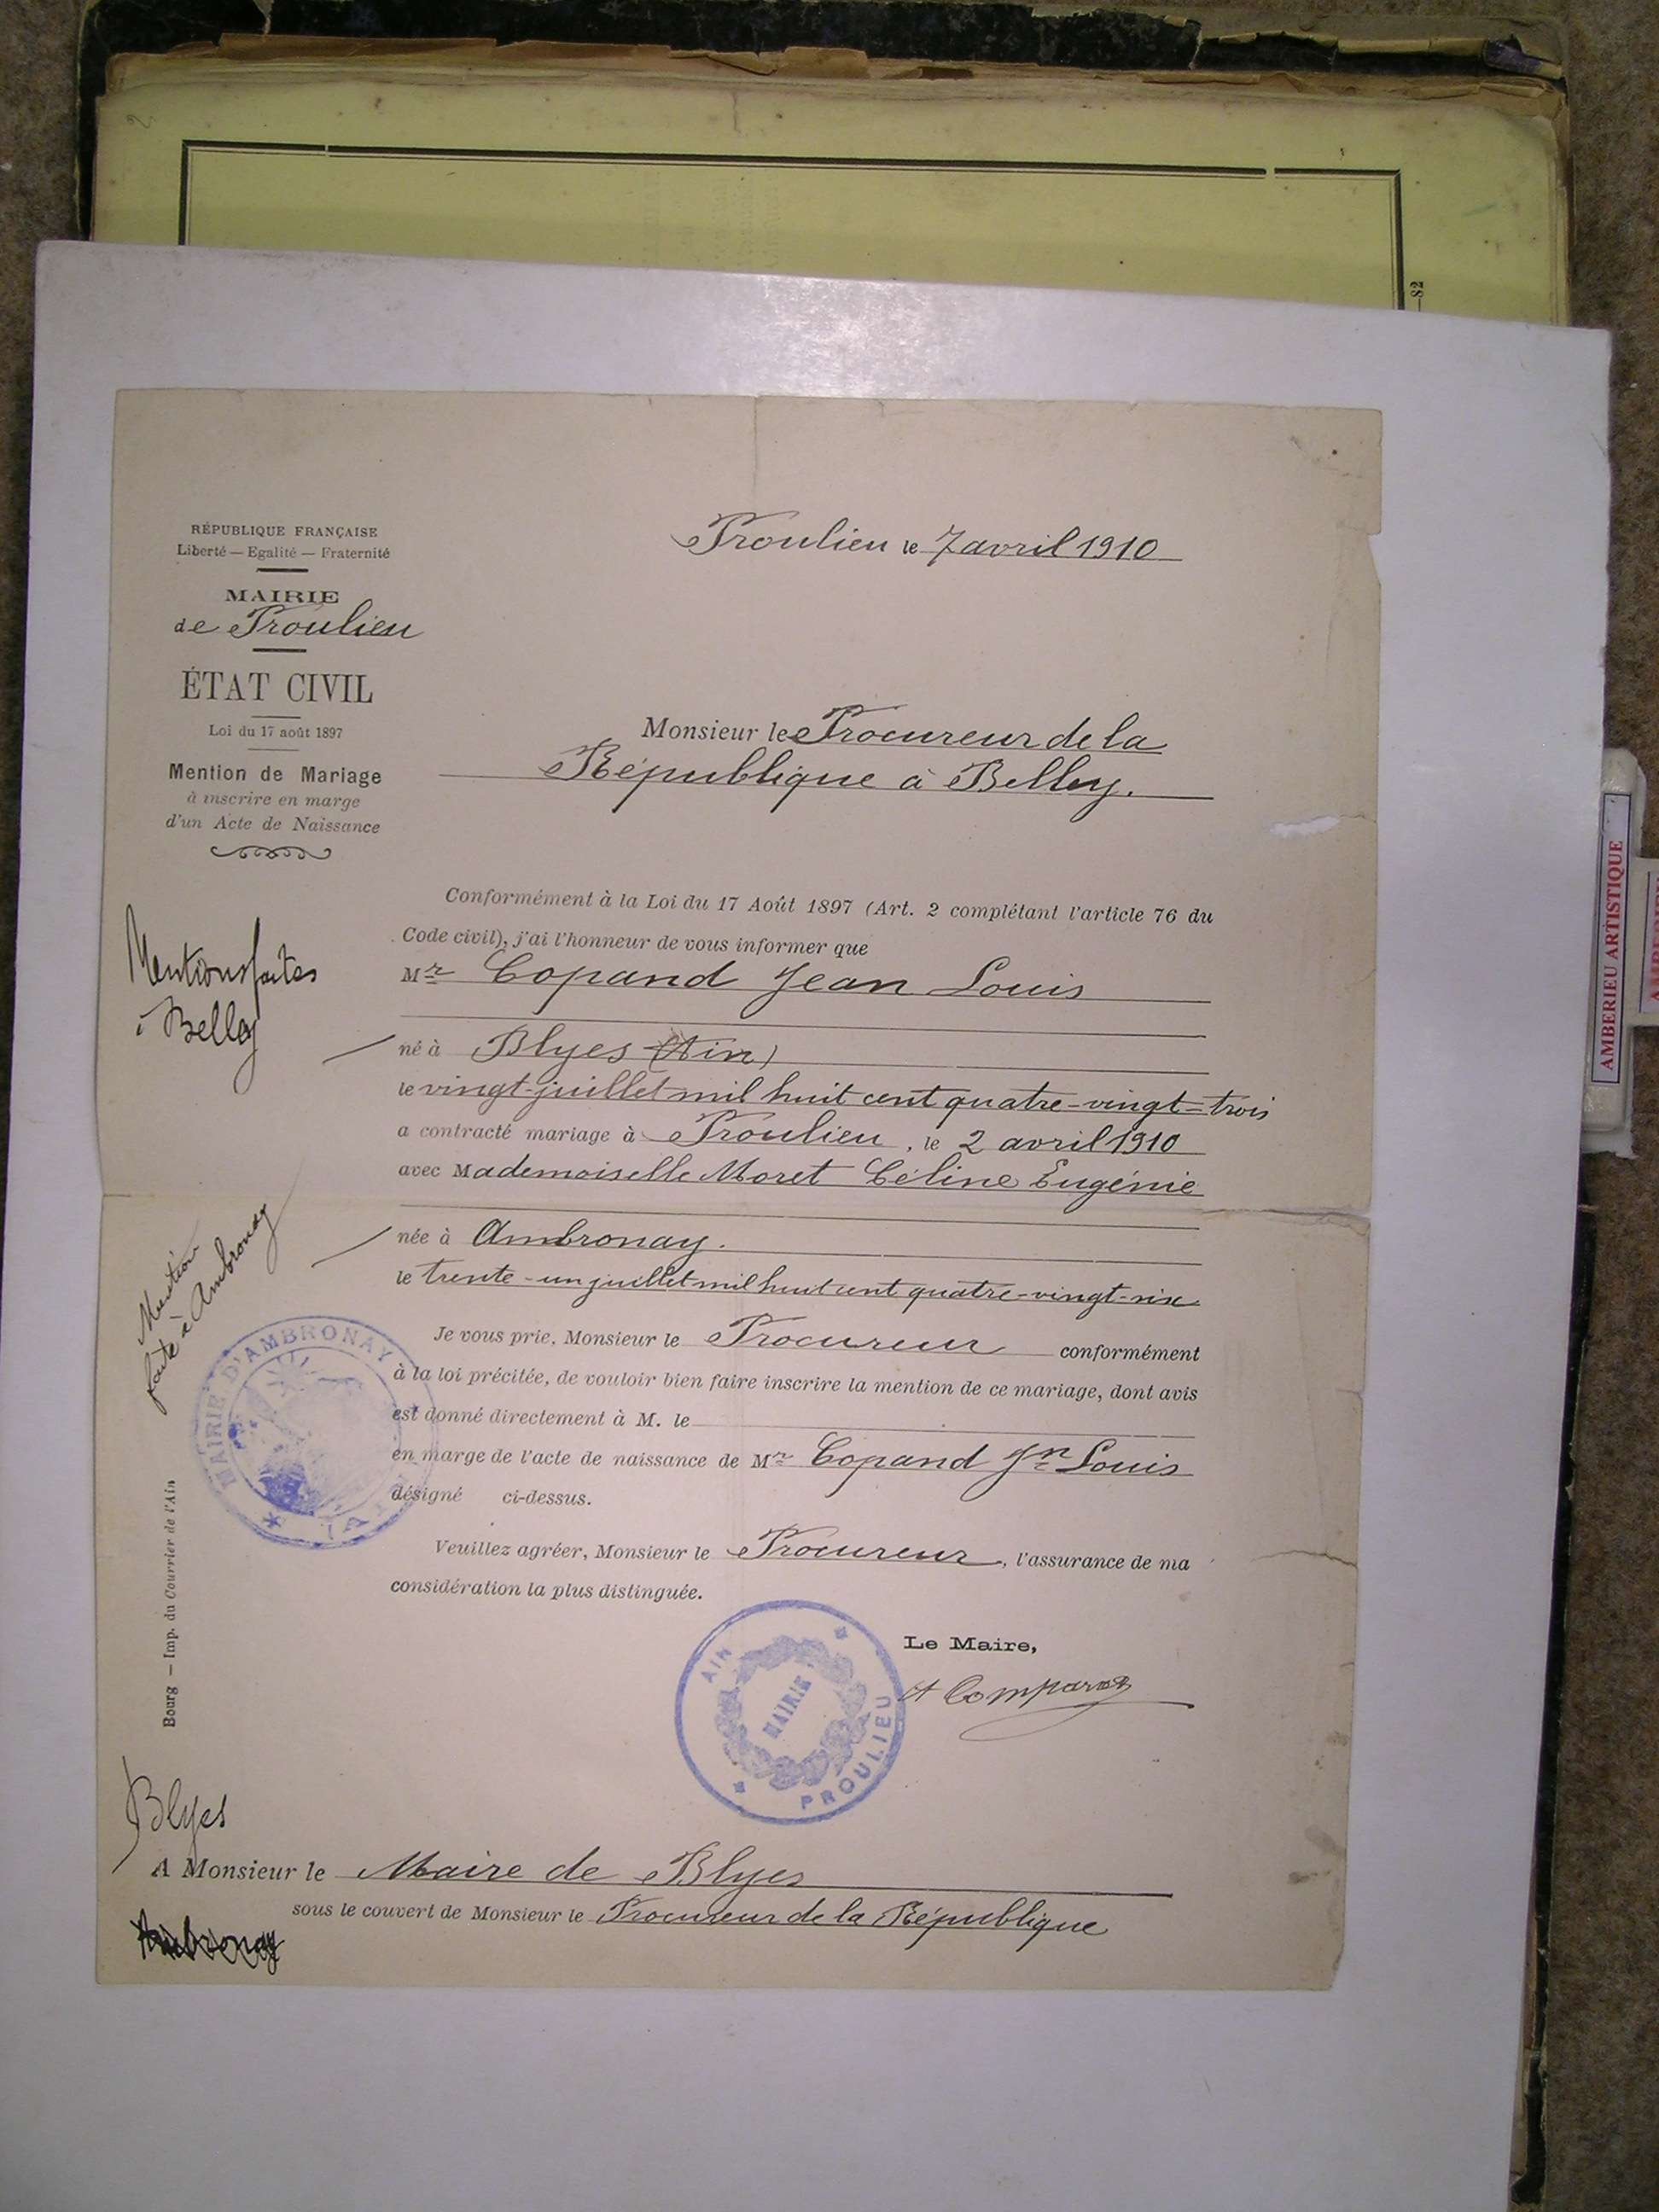 82
RÉPUBLIQUE FRANÇAISE
Liberté — Egalité — Fraternité
MAIRIE
de Proulieu
ÉTAT CIVIL
Loi du 17 août 1897
Mention de Mariage
à inscrire en marge
d'un Acte de Naissance
Proulieu le 7 avril 1910
Monsieur le Procureur de la
République à Belley.
Conformément à la Loi du 17 Août 1897 (Art. 2 complétant l'article 76 du
Code civil), j'ai l'honneur de vous informer que
Mr Copand Jean Louis
né à Blyes (Ain)
le vingt-juillet mil huit cent quatre-vingt-trois
a contracté mariage à Proulieu, le 2 avril 1910
avec Mademoiselle Moret Céline Eugénie
née à Ambronay.
le trente-un juillet mil huit cent quatre-vingt-six
Je vous prie, Monsieur le Procureur conformément
à la loi précitée, de vouloir bien faire inscrire la mention de ce mariage, dont avis
est donné directement à M. le
en marge de l'acte de naissance de Mr Copand Jn Louis
désigné ci-dessus.
Veuillez agréer, Monsieur le Procureur, l'assurance de ma
considération la plus distinguée.
Le Maire,
A Comparoz
AIN
MAIRIE
PROULIEU
Mentions faites
à Belley
Mention
faite à Ambronay
MAIRIE D'AMBRONAY
(AIN)
Bourg — Imp. du Courrier de l'Ain
Blyes
A Monsieur le Maire de Blyes
sous le couvert de Monsieur le Procureur de la République
Ambronay
AMBERIEU ARTISTIQUE